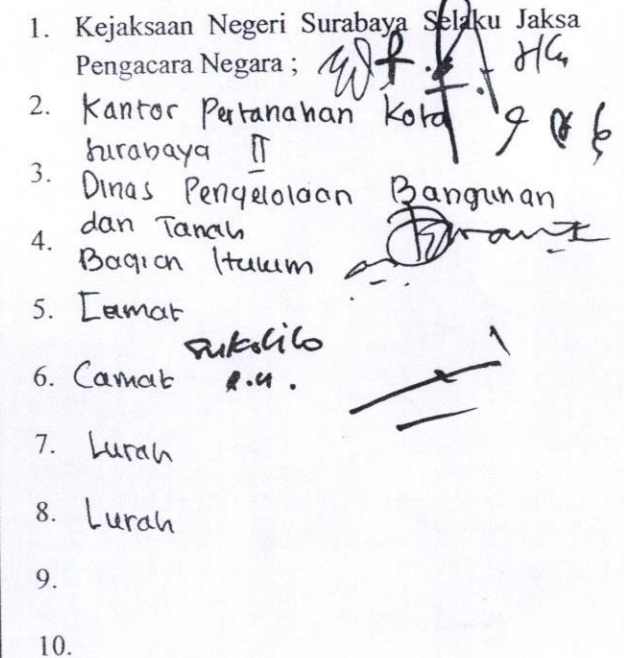 1. Kejaksaan Negeri Surabaya Selaku Jaksa
Pengacara Negara ;
2. Kantor Pertanahan Kota
Surabaya II
3. Dinas Pengelolaan Bangunan
dan Tanah
4. Bagian Hukum
5. Camat
Sukolilo
6. Camat
7. Lurah
8. Lurah
9.
10.